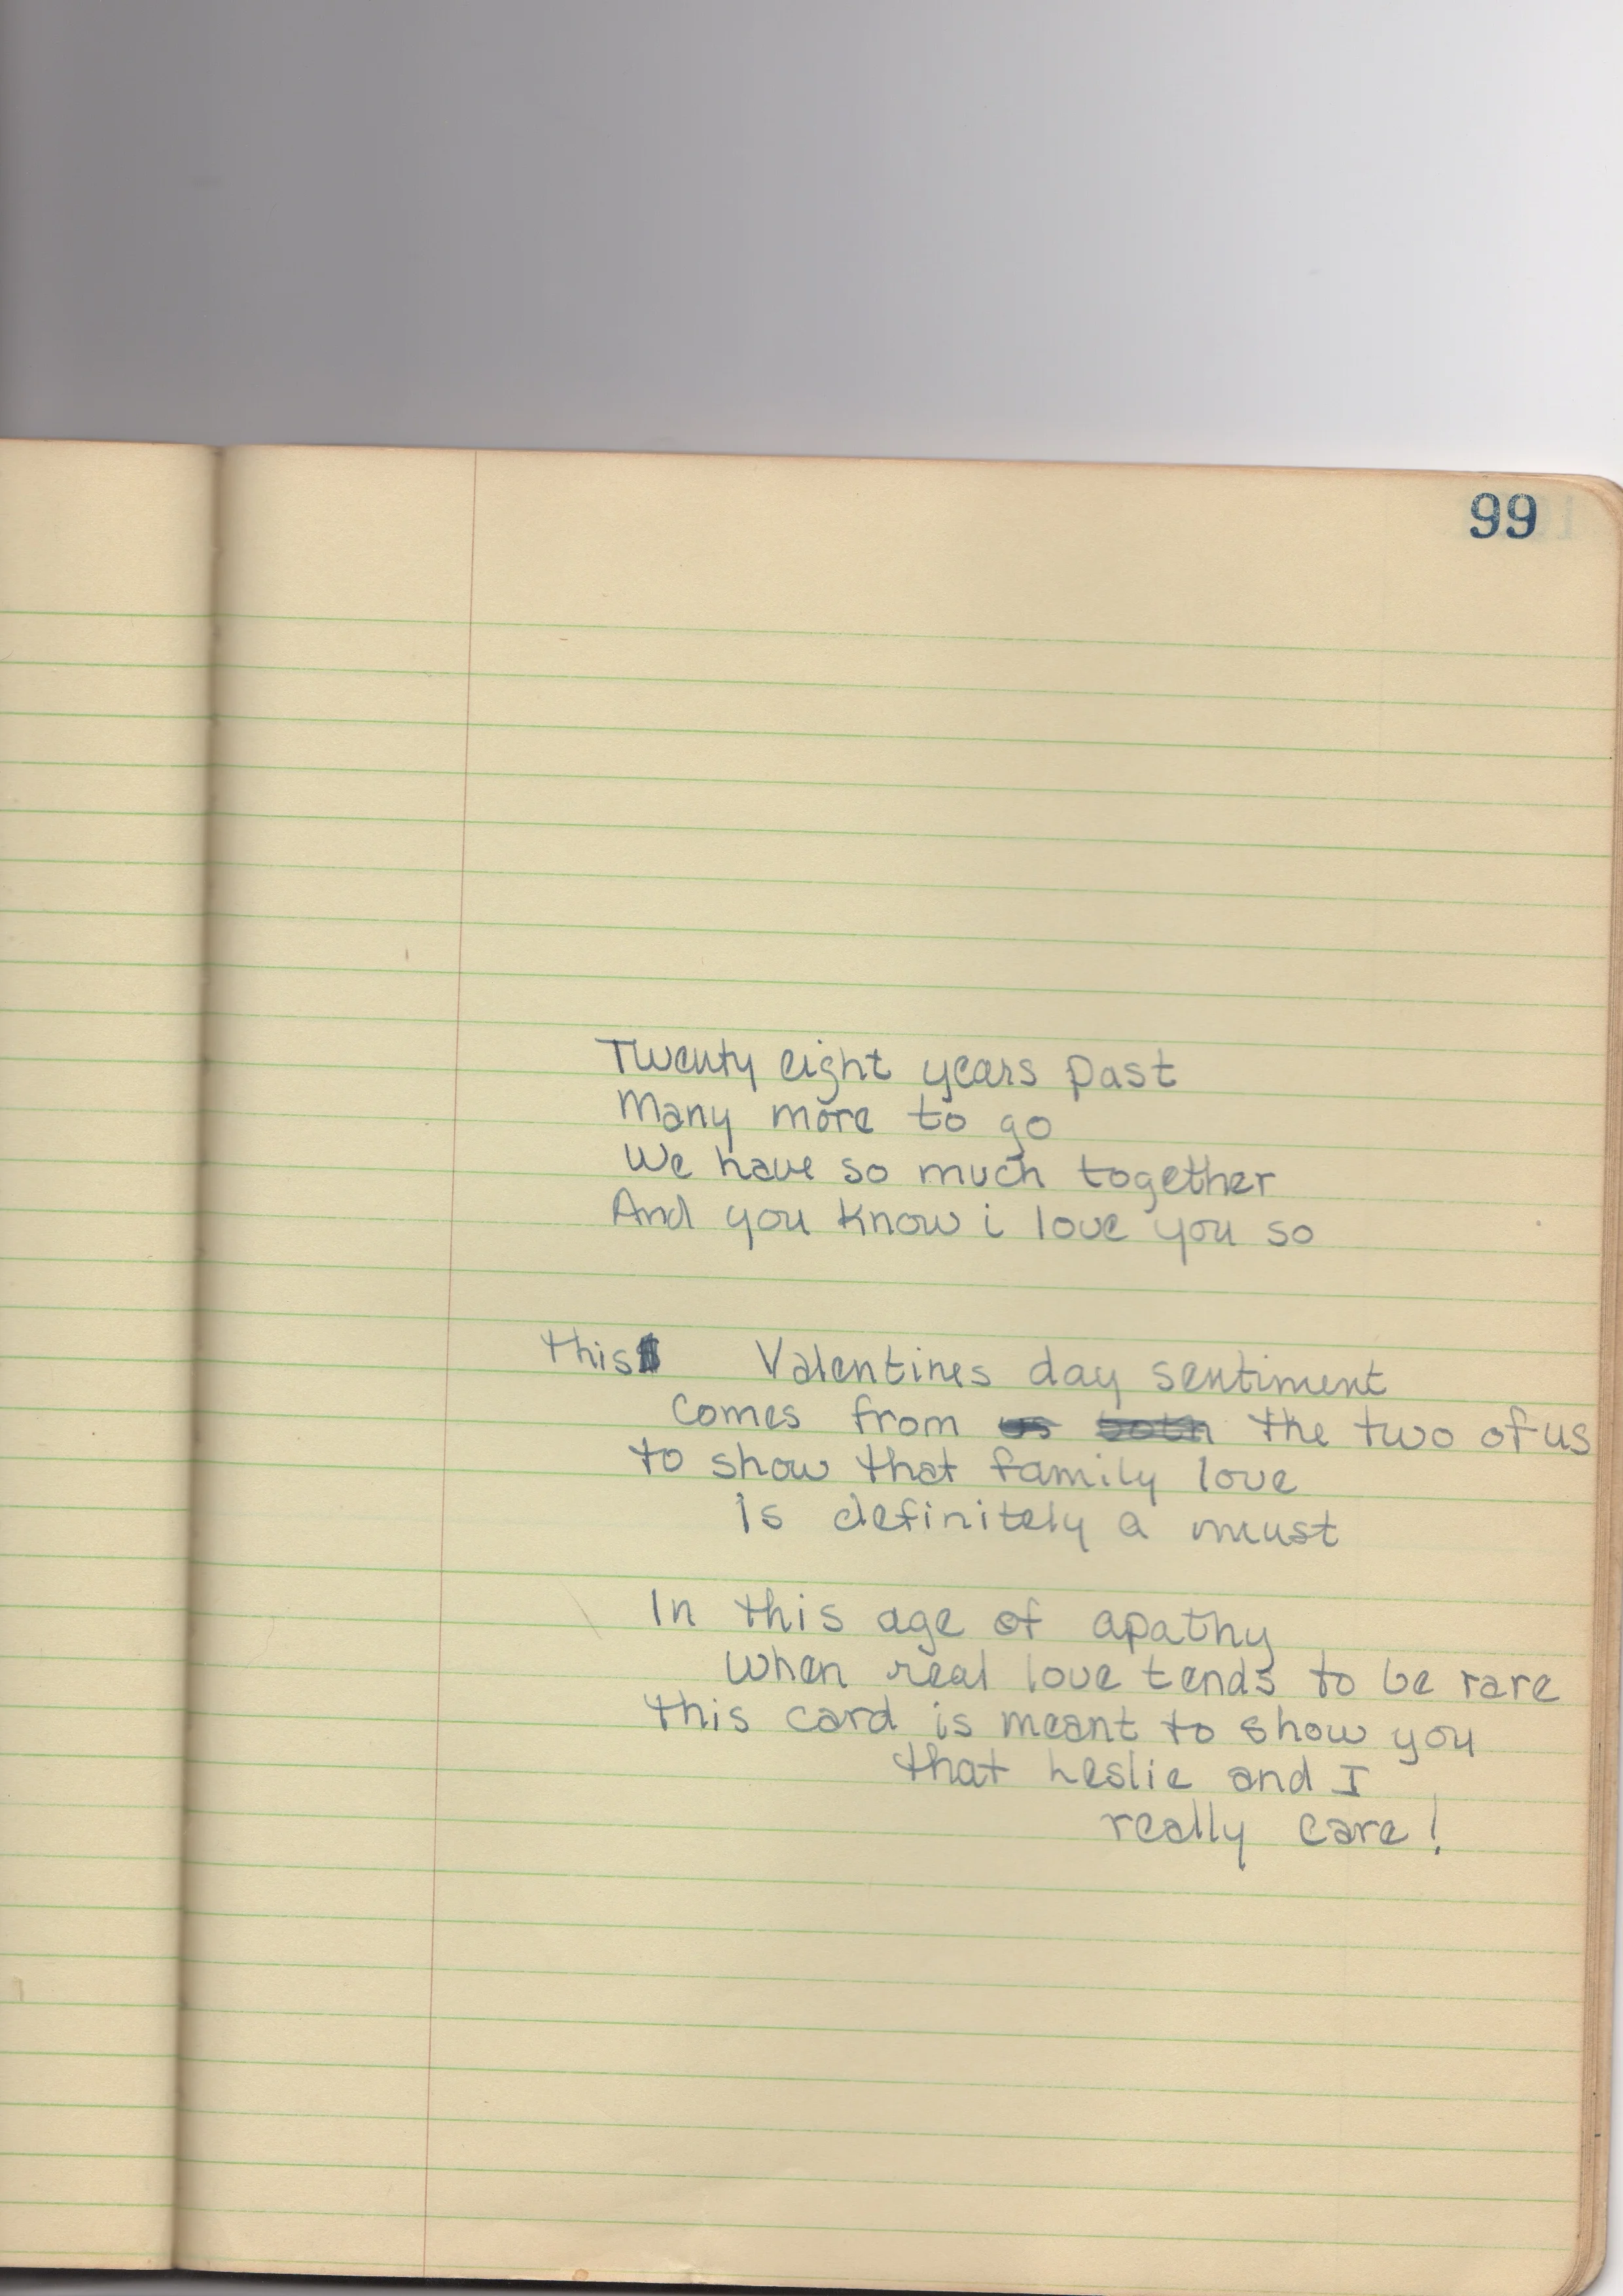 99
Twenty eight years past
Many more to go
We have so much together
And you know i love you so
this Valentines day sentiment
comes from us both the two of us
to show that family love
is definitely a must
In this age of apathy
when real love tends to be rare
this card is meant to show you
that Leslie and I
really care!